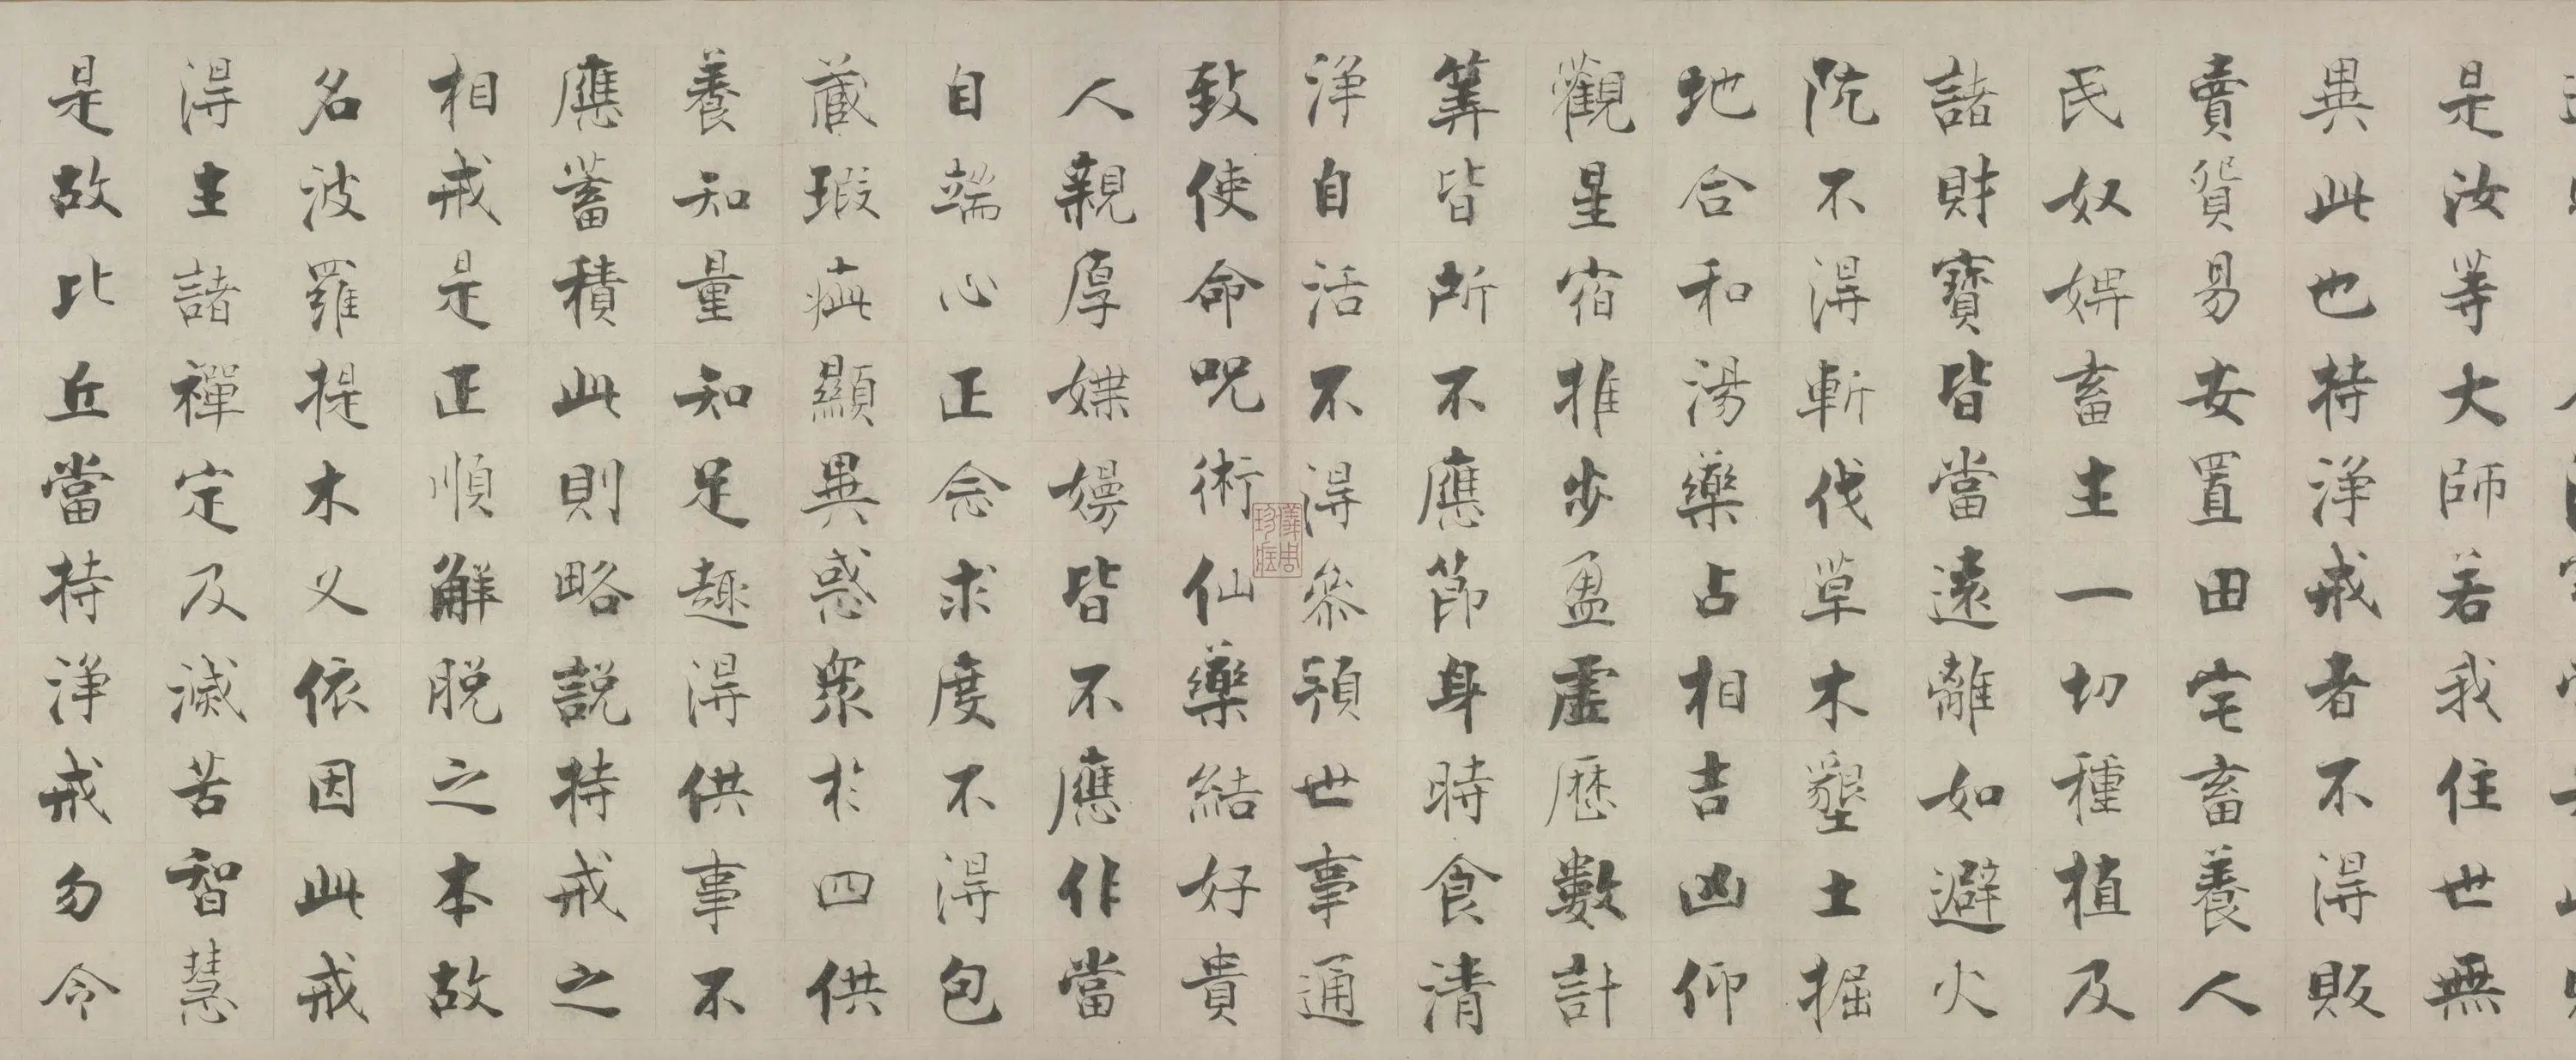 是汝等大師若我住世無
異此也持淨戒者不得販
賣貿易安置田宅畜養人
民奴婢畜主一切種植及
諸財寶皆當遠離如避火
阬不得斬伐草木墾土掘
地合和湯藥占相吉凶仰
觀星宿推步盈虛曆數計
筭皆所不應節身時食清
淨自活不得參預世事通
致使命呪術仙藥結好貴
人親厚媟嫚皆不應作當
自端心正念求度不得包
藏瑕疵顯異惑眾於四供
養知量知足趣得供事不
應蓄積此則略說持戒之
相戒是正順解脫之本故
名波羅提木叉依因此戒
得主諸禪定及滅苦智慧
是故比丘當持淨戒勿令